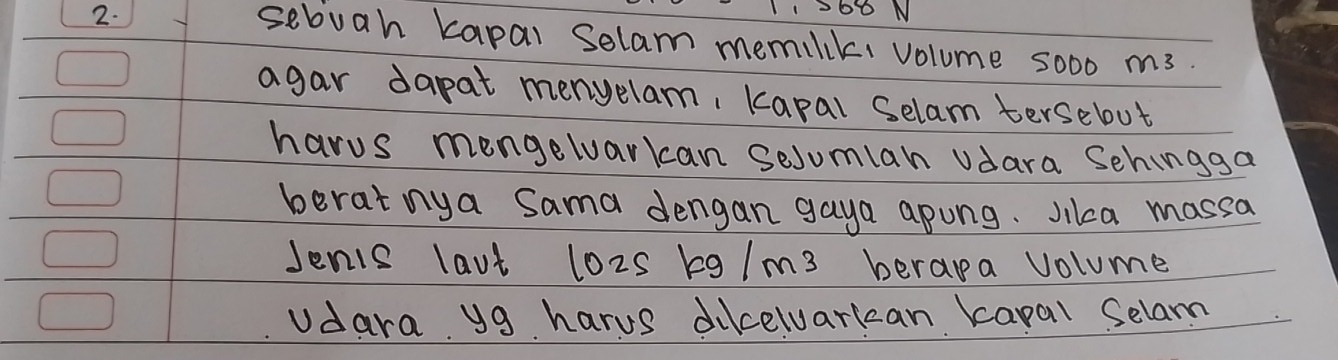 1,568 N
2. sebuah kapal selam memiliki volume 5000 m3.
agar dapat menyelam, kapal selam tersebut
harus mengeluarkan sejumlah udara sehingga
beratnya sama dengan gaya apung. Jika massa
Jenis laut 1025 kg/m3 berapa volume
Udara yg harus dikeluarkan kapal selam